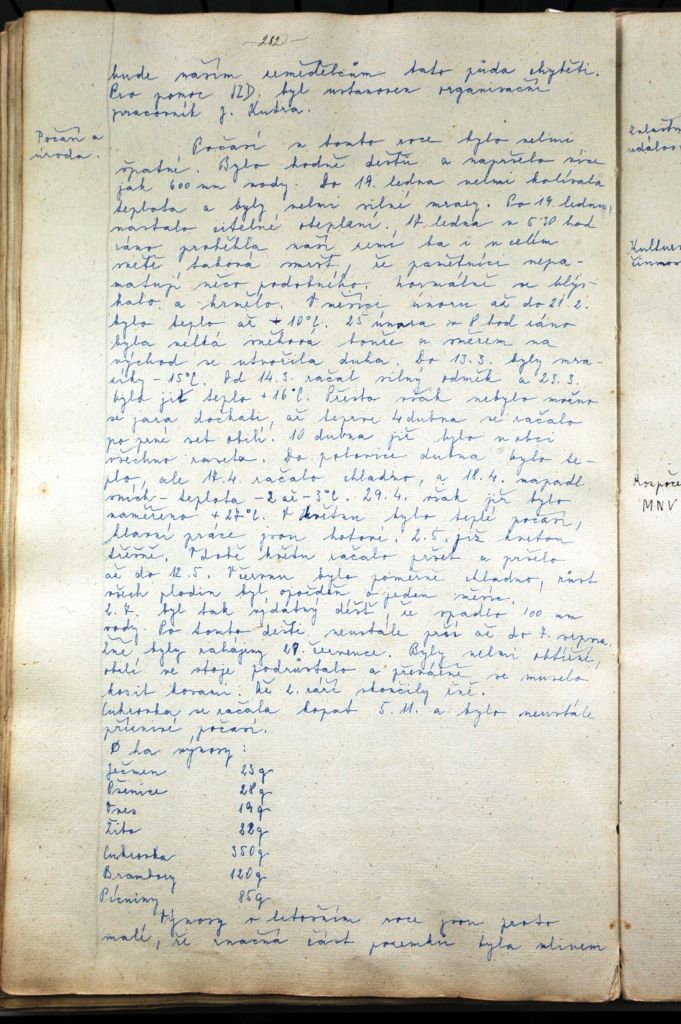 - 282 -
bude našim zemědělcům tato půda chyběti.
Pro pomoc JZD. byl ustanoven organisační
pracovník J. Kutra.
Počasí a
úroda.
Počasí v tomto roce bylo velmi
špatné. Bylo hodně deštů a napršelo více
jak 600 mm vody. Do 19. ledna velmi kolísala
teplota a byly velmi silné mrazy. Po 19. lednu,
nastalo citelné oteplení. 17. ledna v 5:30 hod
ráno proběhla naší zemí ba i v celém
světě taková smršť, že pamětníce nepa-
matují něco podobného. Normálně se blýs-
kalo a hrmělo. V měsíce únoru až do 21. 2.
bylo teplo až + 10°C. 25 února v 8 hod ráno
byla velká sněhová bouře a směrem na
východ se utvořila duha. Do 13. 3. byly mra-
zíky - 15°C. Od 14. 3. začal silný odměk a 23. 3.
bylo již teplo + 16°C. Přesto však nebylo možno
se jara dočkati, až teprve 4 dubna se začalo
po prvé set obilí. 10 dubna již bylo v obci
všechno zaseto. Do polovice dubna bylo te-
plo, ale 17. 4. začalo chladno, a 18. 4. napadl
sníh - teplota -2 až -3°C. 29. 4. však již bylo
naměřeno + 27°C. V květnu bylo teplé počasí,
hlavní práce jsou hotové. 2. 5. již kvetou
třešně. V době květu začalo pršet a pršelo
až do 12. 5. V červnu bylo poměrně chladno, růst
všech plodin byl opožděn o jeden měsíc.
2. 7. byl tak vydatný déšť, že spadlo 100 mm
vody. Po tomto dešti neustále prší až do 7. srpna.
Žně byly zahájeny 27. července. Byly velmi obtížné,
obilí ve stoje podrůstalo a převážně se muselo
kosit kosami. Ke 2. září skončily žně.
Cukrovka se začala kopat 5. 11. a bylo neustále
příznivé počasí.
Ø ha výnosy :
Ječmen 23 q
Pšenice 28 q
Oves 19 q
Žito 22 q
Cukrovka 350 q
Brambory 120 q
Pícniny 85 q
Výnosy v letošním roce jsou proto
malé, že značná část pozemků byla vlivem
Kulturn
činnos
Rozpoče
MNV